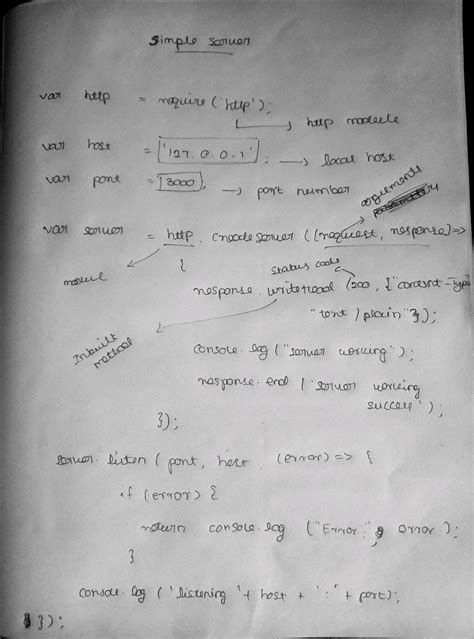 Simple server
var http = require('http');
http module
var host = '127.0.0.1'; → local host
var port = 3000; → port number
arguments
var server = http.createServer((request, response) =>
{
module
status code
response.writeHead (200, {"content-Type"
"text/plain"});
Inbuilt
method
console.log ("server working");
response.end ('server working
success');
});
server.listen (port, host, (error) => {
if (error) {
return console.log ("Error:", error);
}
console.log ('listening' + host + ':' + port);
});